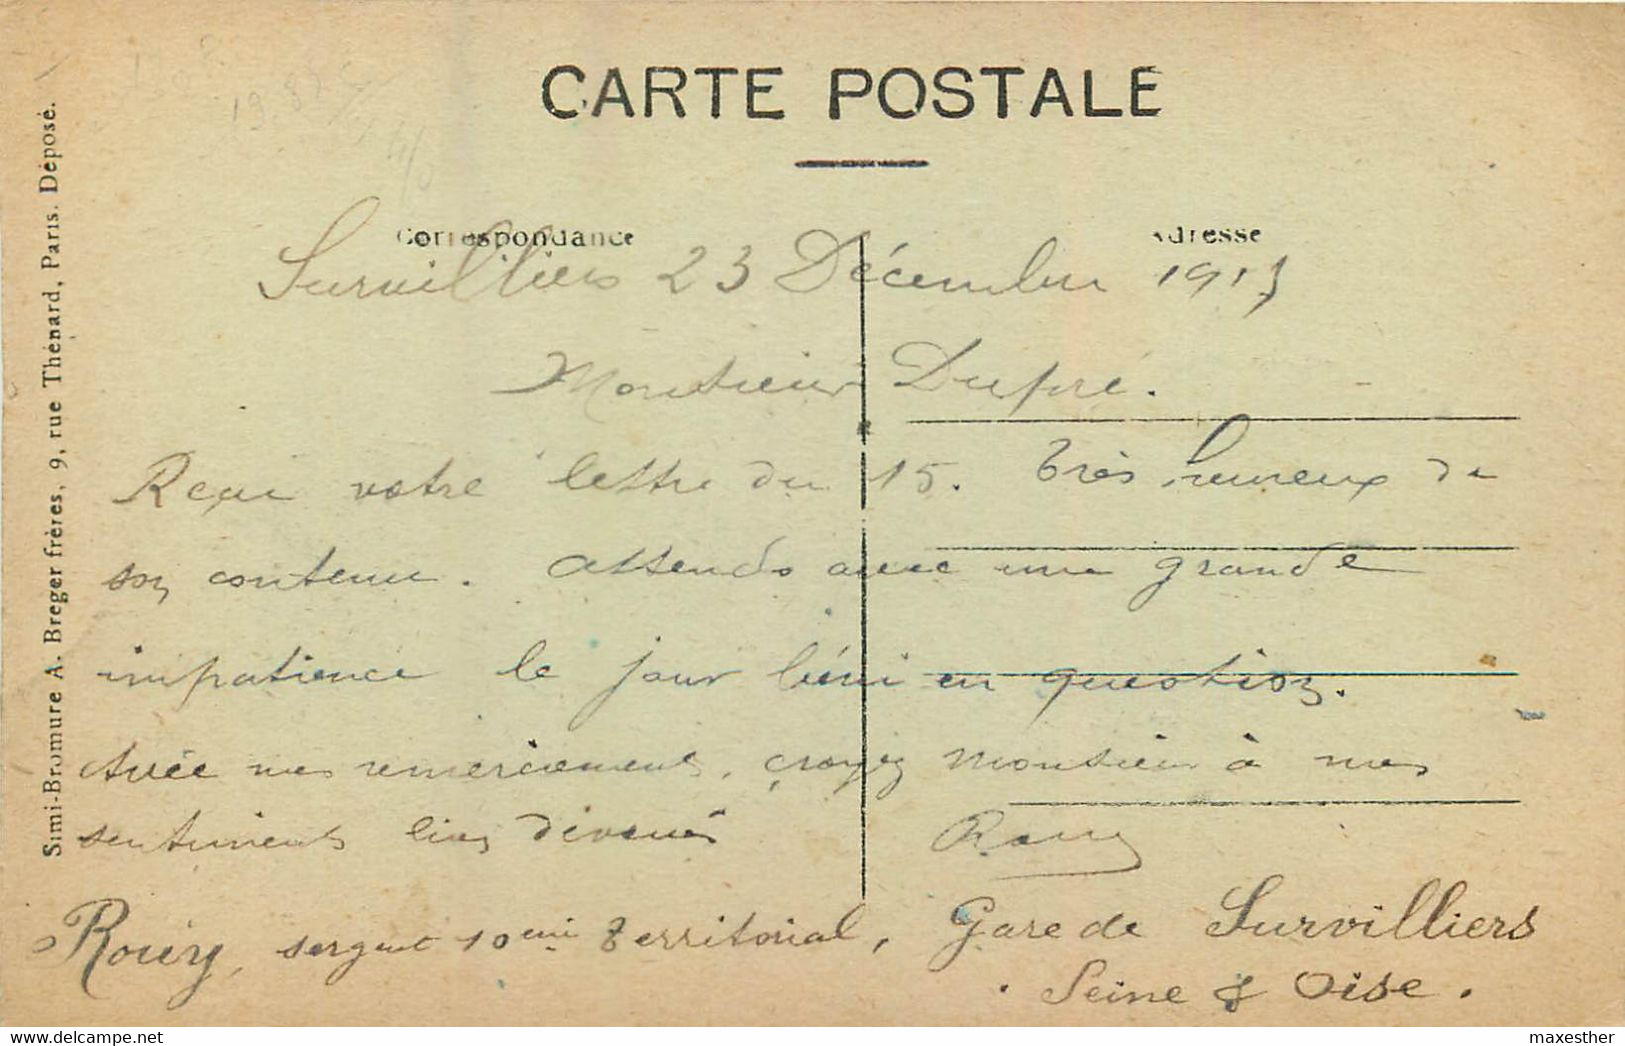 CARTE POSTALE
Correspondance
Adresse
Survilliers 23 Décembre 191
Monsieur Dupré.
Reçu votre lettre du 15. Très heureux de
son contenu. Attends avec une grande
impatience le jour béni en question.
Avec mes remerciements, croyez Monsieur à mes
sentiments bien dévoués
Rouy
Rouy, sergent 10eme Territorial, Gare de Survilliers
Seine & Oise.
Simi-Bromure A. Breger frères, 9, rue Thénard, Paris. Déposé.
maxesther